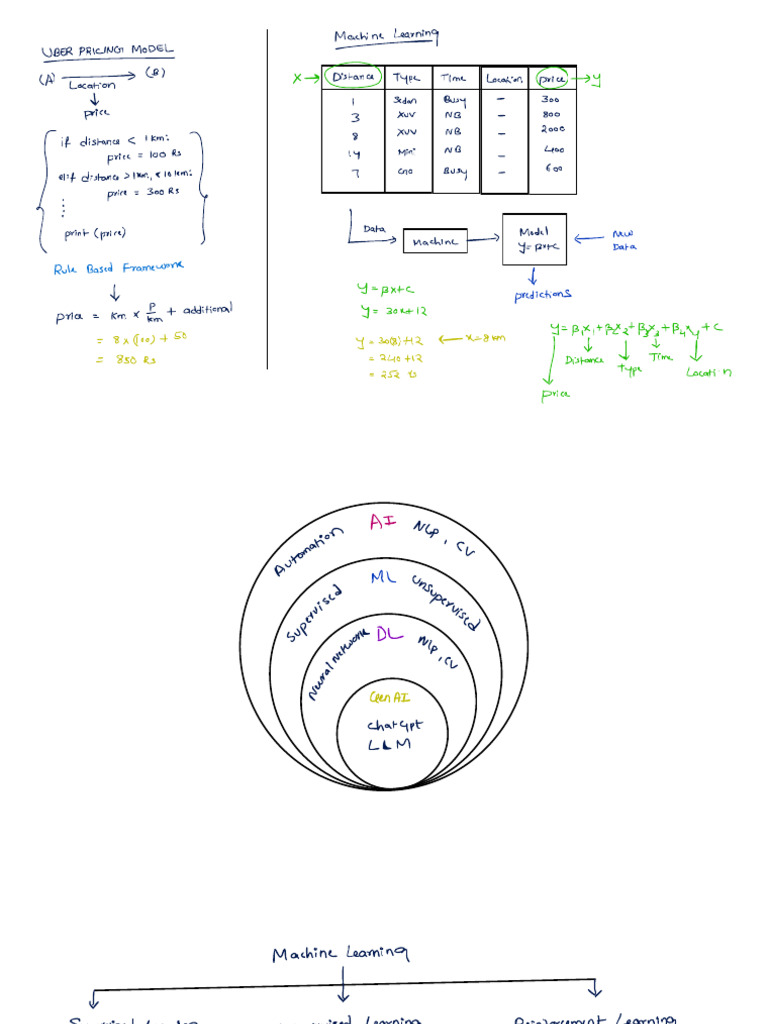 UBER PRICING MODEL
(A) (B)
Location
price
if distance < 1km:
price = 100 Rs
elif distance > 1km, < 10km:
price = 300 Rs
print (price)
Rule Based Framework
price = km × P/km + additional
= 8 × (100) + 50
= 850 Rs
Machine Learning
X Distance Type Time Location price y
1 Sedan Busy – 300
3 XUV NB – 800
8 XUV NB – 2000
14 Mini NB – 400
7 Busy – 600
Data
Machine
Model
y = βx+c
New Data
predictions
y = βx+c
y = 30x+12
y = 30(8)+12 x=8km
= 240+12
= 252 rs
y = β₁x₁+β₂x₂+β₃x₃+β₄x₄+c
Distance
Type
Time
Location
price
AI
Automation
NLP, CV
ML
Supervised
Unsupervised
DL
Neural Network
NLP, CV
Gen AI
ChatGpt
LLM
Machine Learning
Learning
Reinforcement Learning